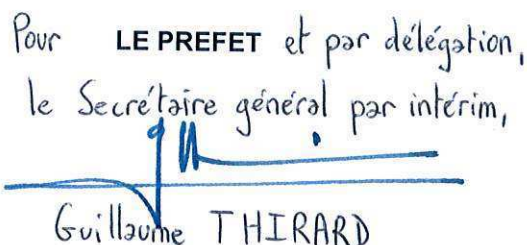 Pour LE PREFET et par délégation,
le Secrétaire général par intérim,
Guillaume THIRARD